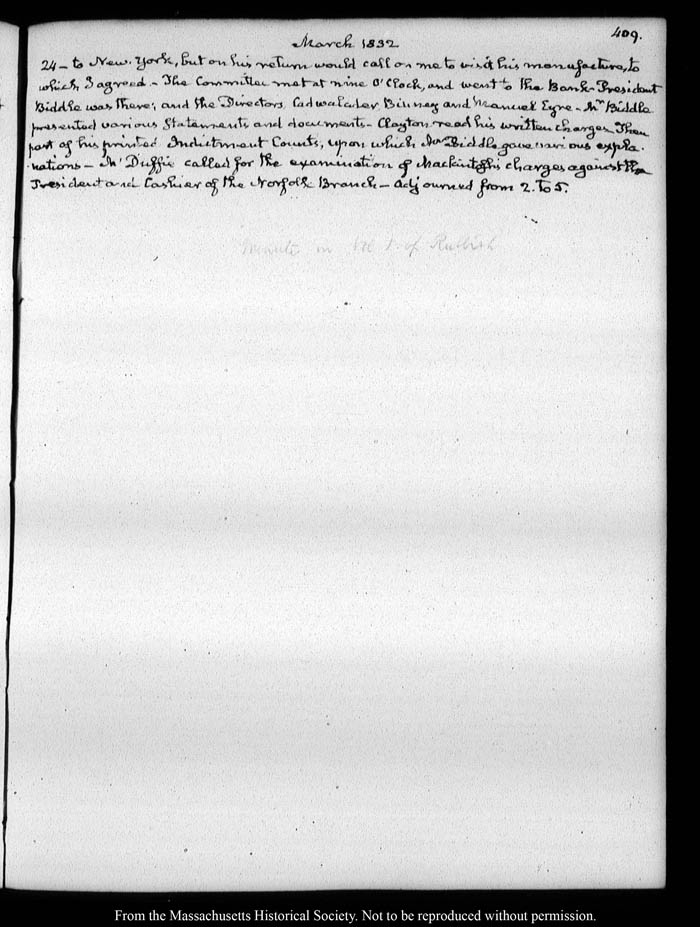 409.
March 1832
24 – to New-York, but on his return would call on me to visit his manufacture, to
which I agreed – The Committee met at nine O'Clock, and went to the Bank – President
Biddle was there; and the Directors, Cadwalader Binney and Manuel Eyre – Mr Biddle
presented various Statements and documents – Clayton read his written charges. Then
part of his printed Indictment Counts, upon which Mr Biddle gave various expla-
nations – Mr Duffie called for the examination of Mackintosh's charges against the
President and Cashier of the Norfolk Branch – Adjourned from 2. to 5.
in Vol 1. of Rubbish
From the Massachusetts Historical Society. Not to be reproduced without permission.